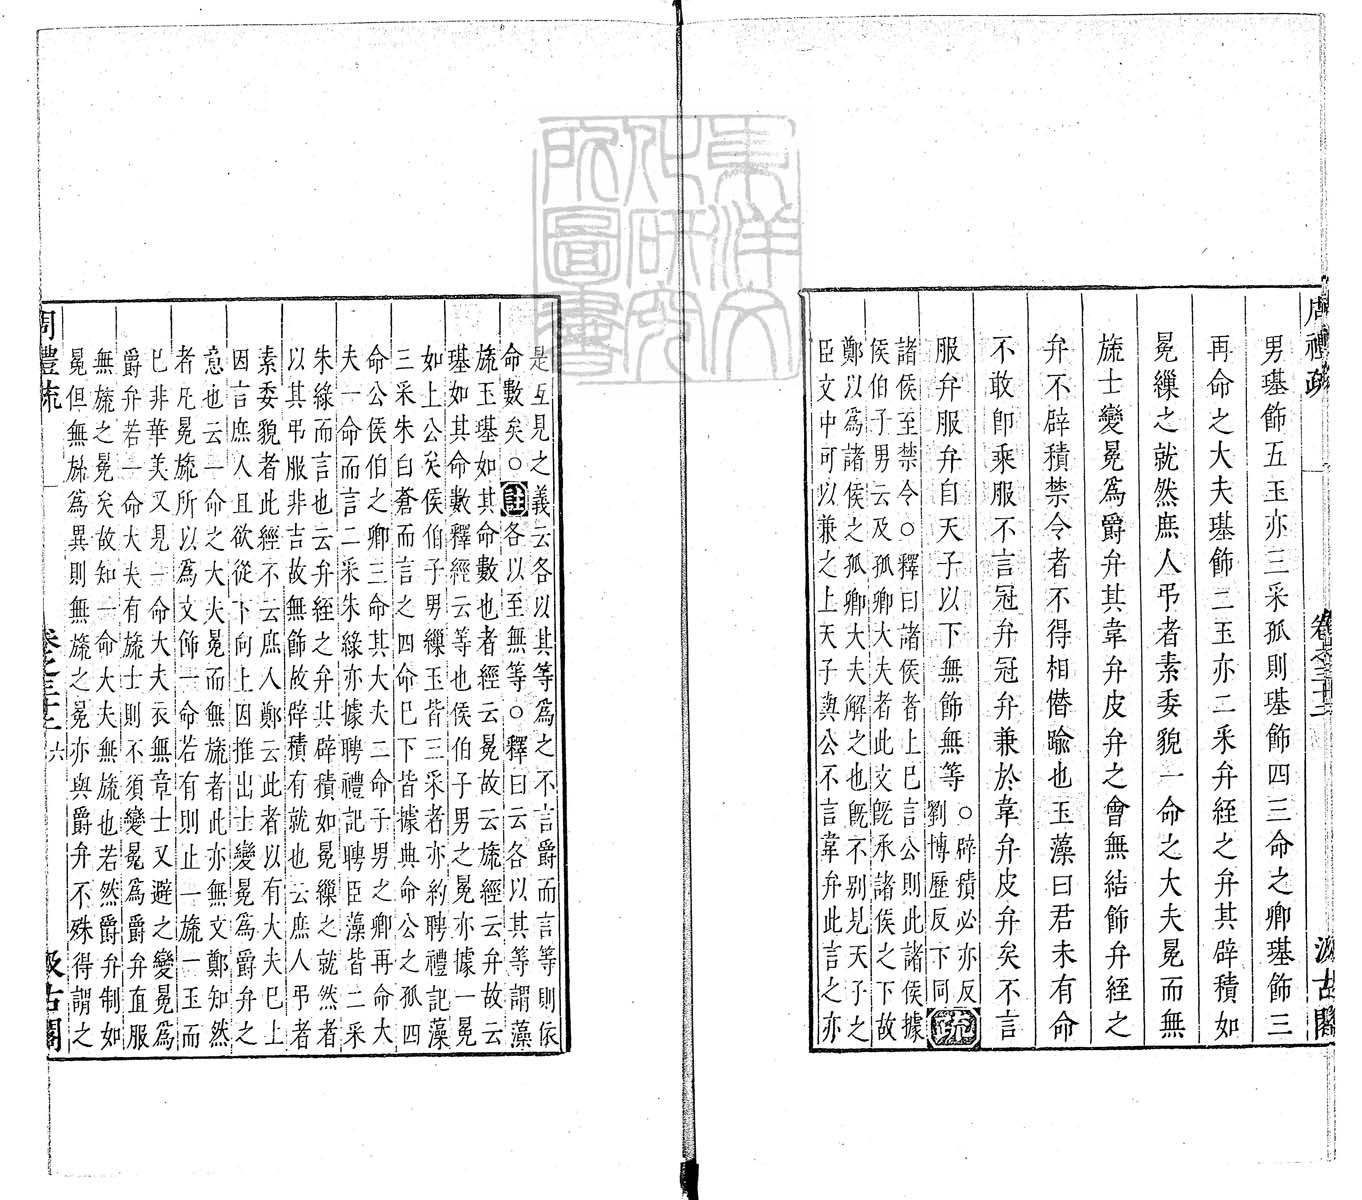 周禮疏
卷之三十二
汲古閣
男璂飾五玉亦三采孤則璂飾四三命之卿璂飾三
再命之大夫璂飾二玉亦二采弁絰之弁其辟積如
冕繅之就然庶人弔者素委貌一命之大夫冕而無
旒士變冕爲爵弁其韋弁皮弁之會無結飾弁絰之
弁不辟積禁令者不得相僭踰也玉藻曰君未有命
不敢卽乘服不言冠弁冠弁兼於韋弁皮弁矣不言
服弁服弁自天子以下無飾無等
○辟積必亦反
劉博歷反下同
疏
諸侯至禁令○釋曰諸侯者上巳言公則此諸侯據
侯伯子男云及孤卿大夫者此文旣承諸侯之下故
鄭以爲諸侯之孤卿大夫解之也旣不別見天子之
臣文中可以兼之上天子與公不言韋弁此言之亦
是互見之義云各以其等爲之不言爵而言等則依
命數矣○註各以至無等○釋曰云各以其等謂藻
旒玉璂如其命數也者經云冕故云旒經云弁故云
璂如其命數釋經云等也侯伯子男之冕亦據一冕
如上公矣侯伯子男繅玉皆三采者亦約聘禮記藻
三采朱白蒼而言之四命巳下皆據典命公之孤四
命公侯伯之卿三命其大夫二命子男之卿再命大
夫一命而言二采朱綠亦據聘禮記聘臣藻皆二采
朱綠而言也云弁絰之弁其辟積如冕繅之就然者
以其弔服非吉故無飾故辟積有就也云庶人弔者
素委貌者此經不云庶人鄭云此者以有大夫巳上
因言庶人且欲從下向上因推出士變冕爲爵弁之
意也云一命之大夫冕而無旒者此亦無文鄭知然
者凡冕旒所以爲文飾一命若有則止一旒一玉而
巳非華美又見一命大夫衣無章士又避之變冕爲
爵弁若一命大夫有旒士則不須變冕爲爵弁直服
無旒之冕矣故知一命大夫無旒也若然爵弁制如
冕但無旒爲異則無旒之冕亦與爵弁不殊得謂之
周禮疏
卷之三十二
六
汲古閣
東洋文
化研究
所圖書